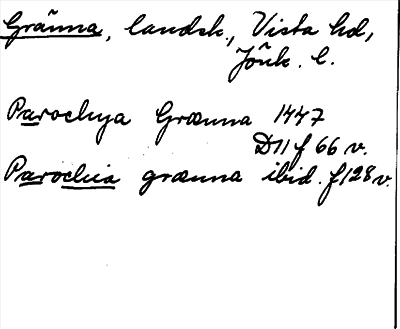 Gränna, landsk., Vista hd,
Jönk. l.
Parochya Grænna 1447
D11 f 66 v.
Parochia grænna ibid. f 128 v.